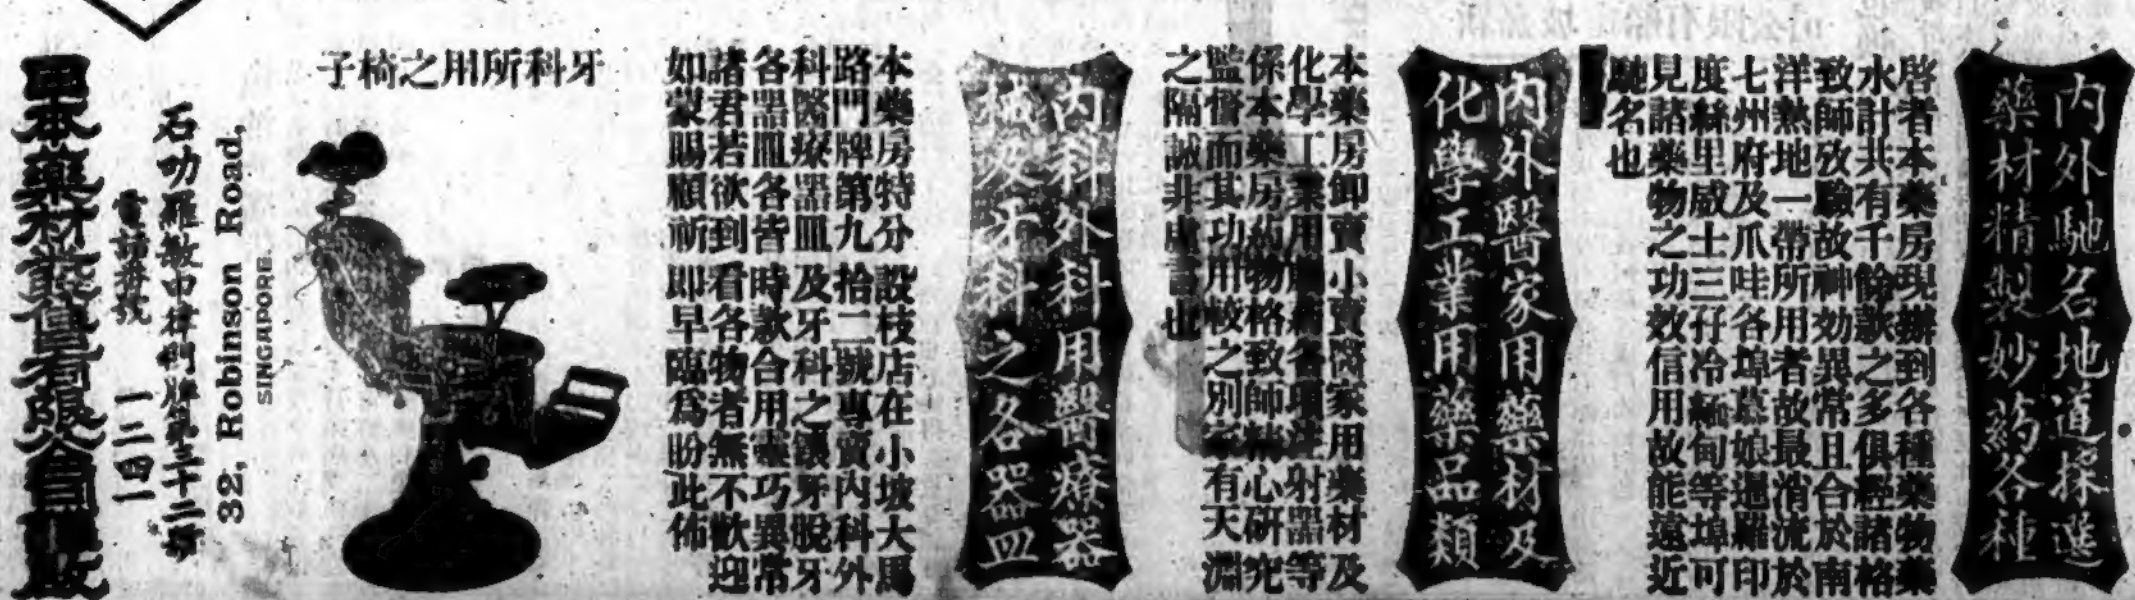 內外馳名地道採選
藥材精製妙葯各種
啓者本藥房現辦到各種藥物藥
水計共有千餘欵之多俱經諸格
致師效驗故神効異常且合於南
洋熱地一帶所用者故最消流於
七州府及爪哇各埠慕娘暹羅印
度絲里威士三孖冷緬甸等埠可
見諸藥物之功效信用故能遠近
馳名也
內外醫家用藥材及
化學工業用藥品類
本藥房卸賣小賣醫家用藥材及
化學工業用 各項注射器等
係本藥房葯物格致師精心研究
監督而其功用較之別 有天淵
之隔誠非虛言也
內科外科用醫療器
械及牙科之各器皿
本藥房特分設枝店在小坡大馬
路門牌第九拾二號專賣內科外
科醫療器皿及牙科之鑲牙脫牙
各器皿各皆時欵合用 巧異常
諸君若欲到看各物者無不歡迎
如蒙賜顧祈即早臨爲盼此佈
牙科所用之椅子
32, Robinson Road,
SINGAPORE.
石叻羅敏申律門牌第三十二號
電話 號 一二四一
日本藥材 有限公司